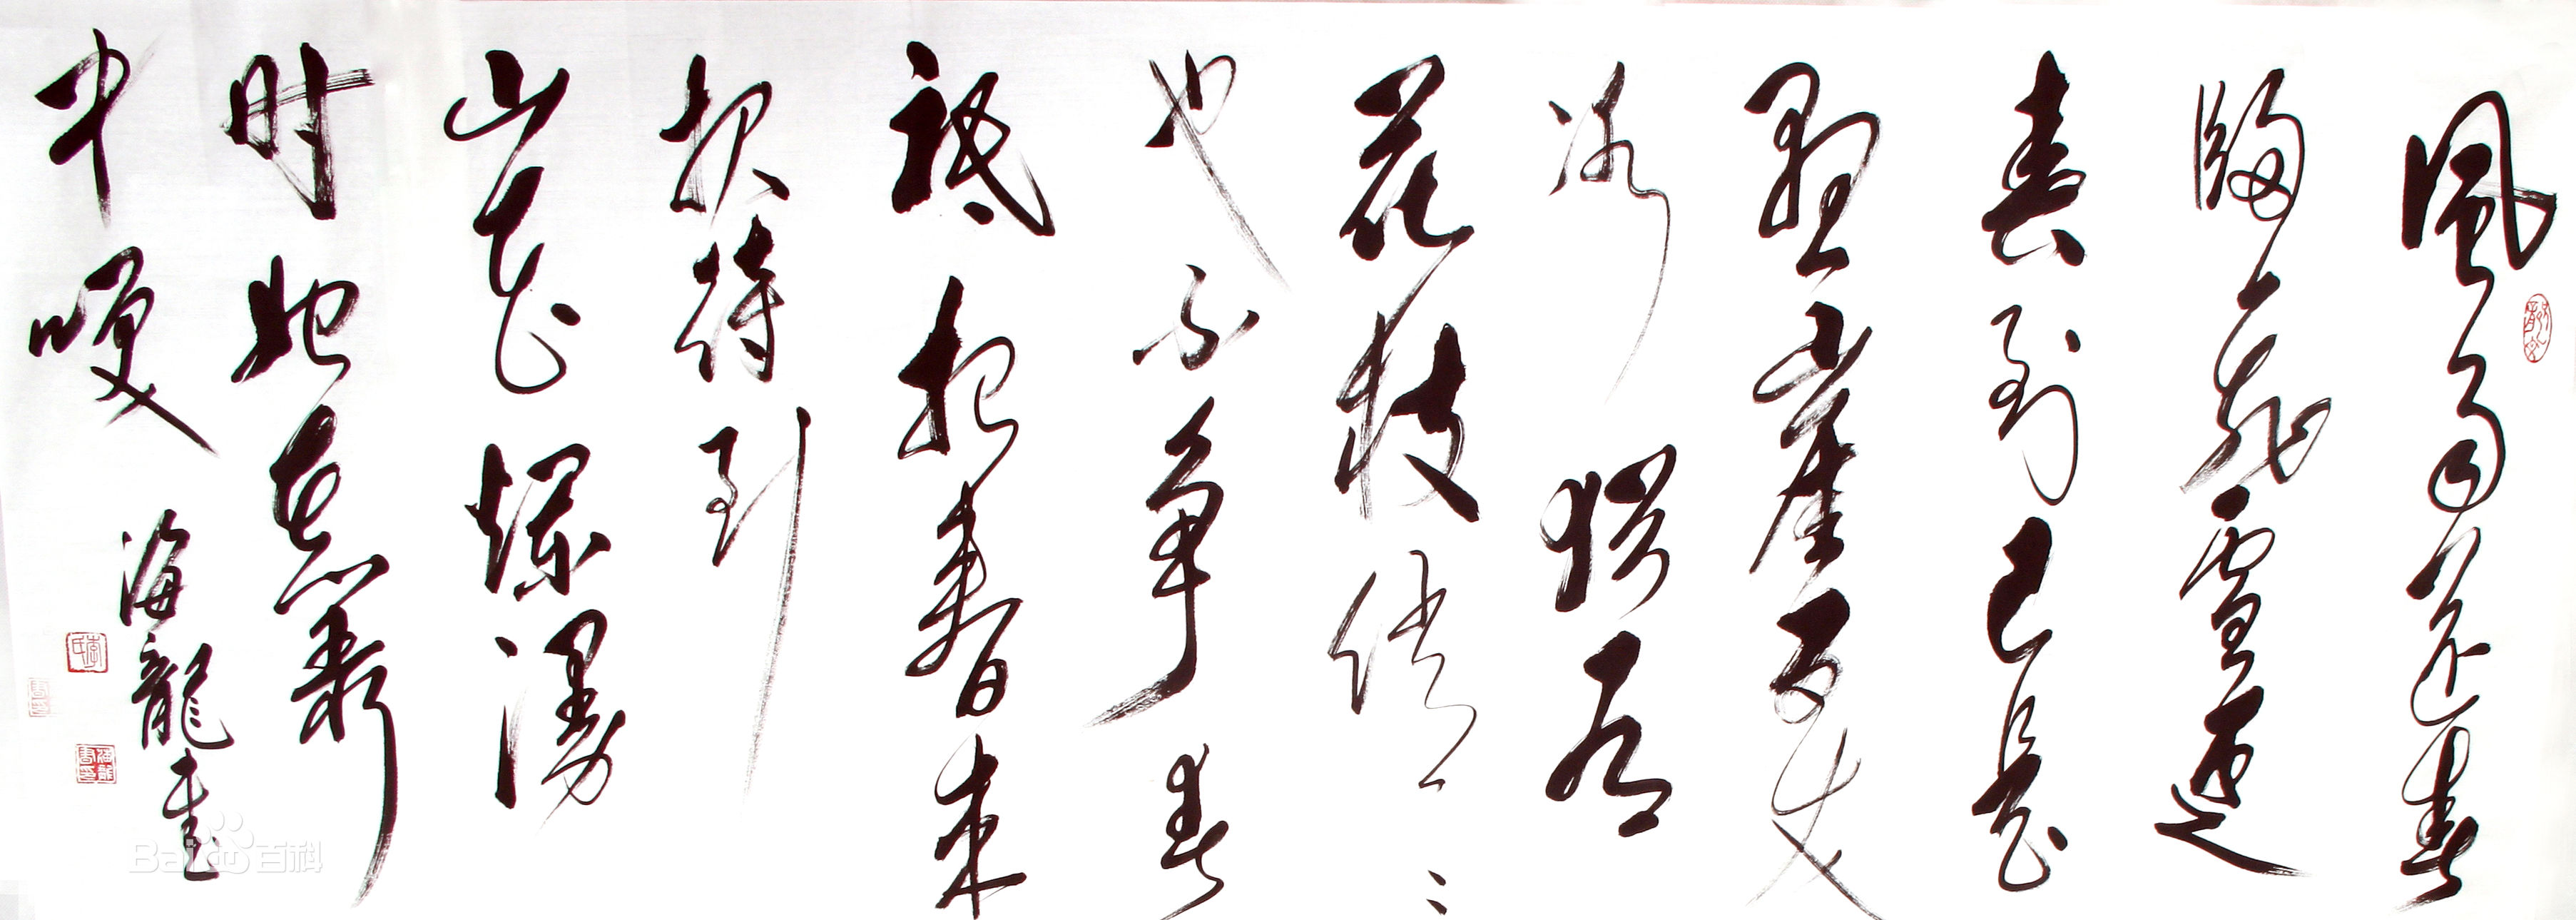 風雨送春
歸飛雪迎
春到已是
懸崖百丈
冰猶有
花枝俏〻
也不争春
祇把春来
报待到
山花爛漫
时她在叢
中笑
海龍書
Baidu百科